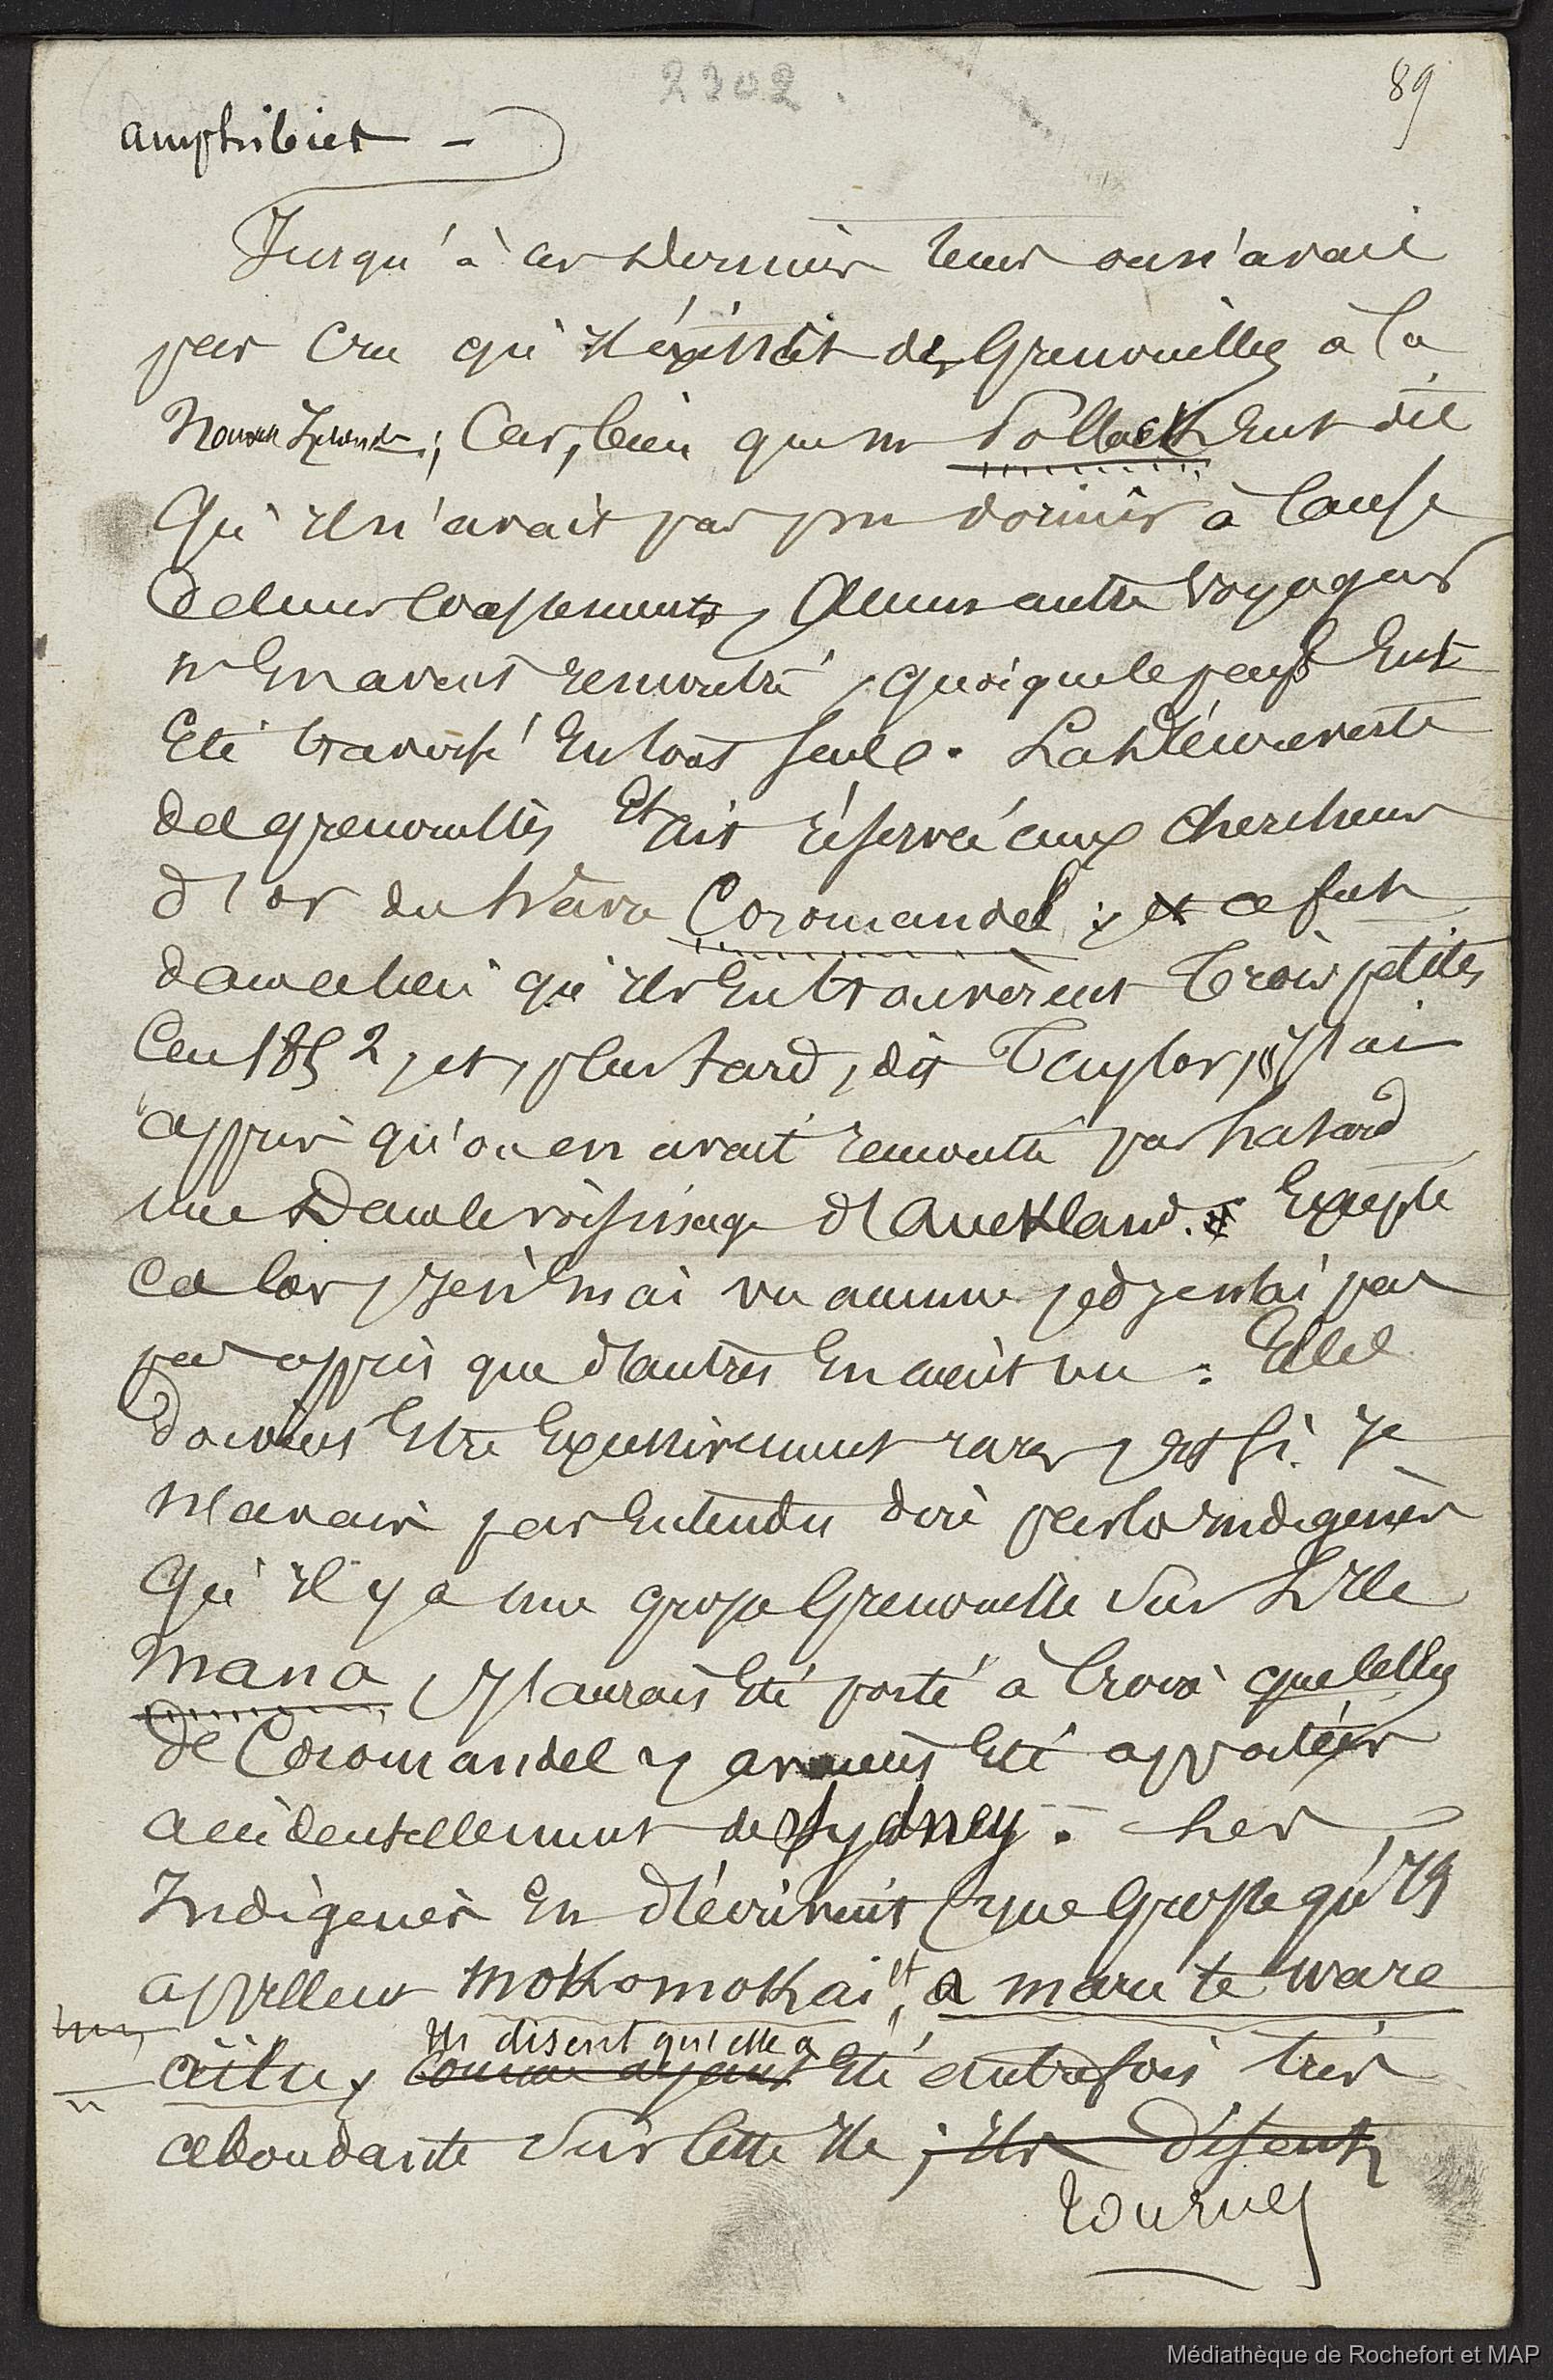 2202.
89
amphibies —
Jusqu'à ces derniers tems on n'avait
pas cru qu'il éxistât des Grenouilles à la
Nouvelle Zelande; Car, bien que mr Pollack Eut dit
Qu'il n'avait pas pu dormir à Cause
de leurs Coassements, Aucun autre Voyageur
n'En avait rencontré, quoique le pays Eut
Eté traversé En tous sens. La découverte
des grenouilles Etait réservée aux Chercheurs
d'or du hâvre Coromandel; et ce fut
dans ce lieu qu'ils En trouvèrent Trois petites
en 1852, et, plus tard, dit Taylor, "J'ai
appris qu'on en avait rencontré par hasard
une Dans le voisinage d'Auckland. Excepté
ce cas, je n'En ai vu aucune, et je n'ai pas
pas appris que d'autres En aient vu. Elles
doivent Etre Excessivement rares, et si Je
N'avais pas Entendu dire par les indigenes
Qu'il y a une grosse Grenouille sur L'Ile
Mana, J'aurais Eté porté à Croire que celles
de Coromandel y avaient Eté apportées
accidentellement de Sydney. Les
Indigenes En décrivent une Grosse qu'Ils
appellent mokomokai, et a maru te ware
aitu, Ils disent qu'elle a Comme ayant Eté autrefois très
abondante sur cette Ile; Ils disent
tournez
Médiathèque de Rochefort et MAP